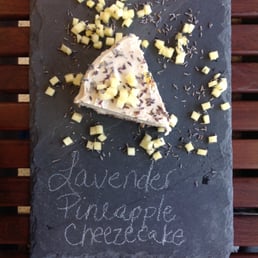 Lavender
Pineapple
Cheezecake